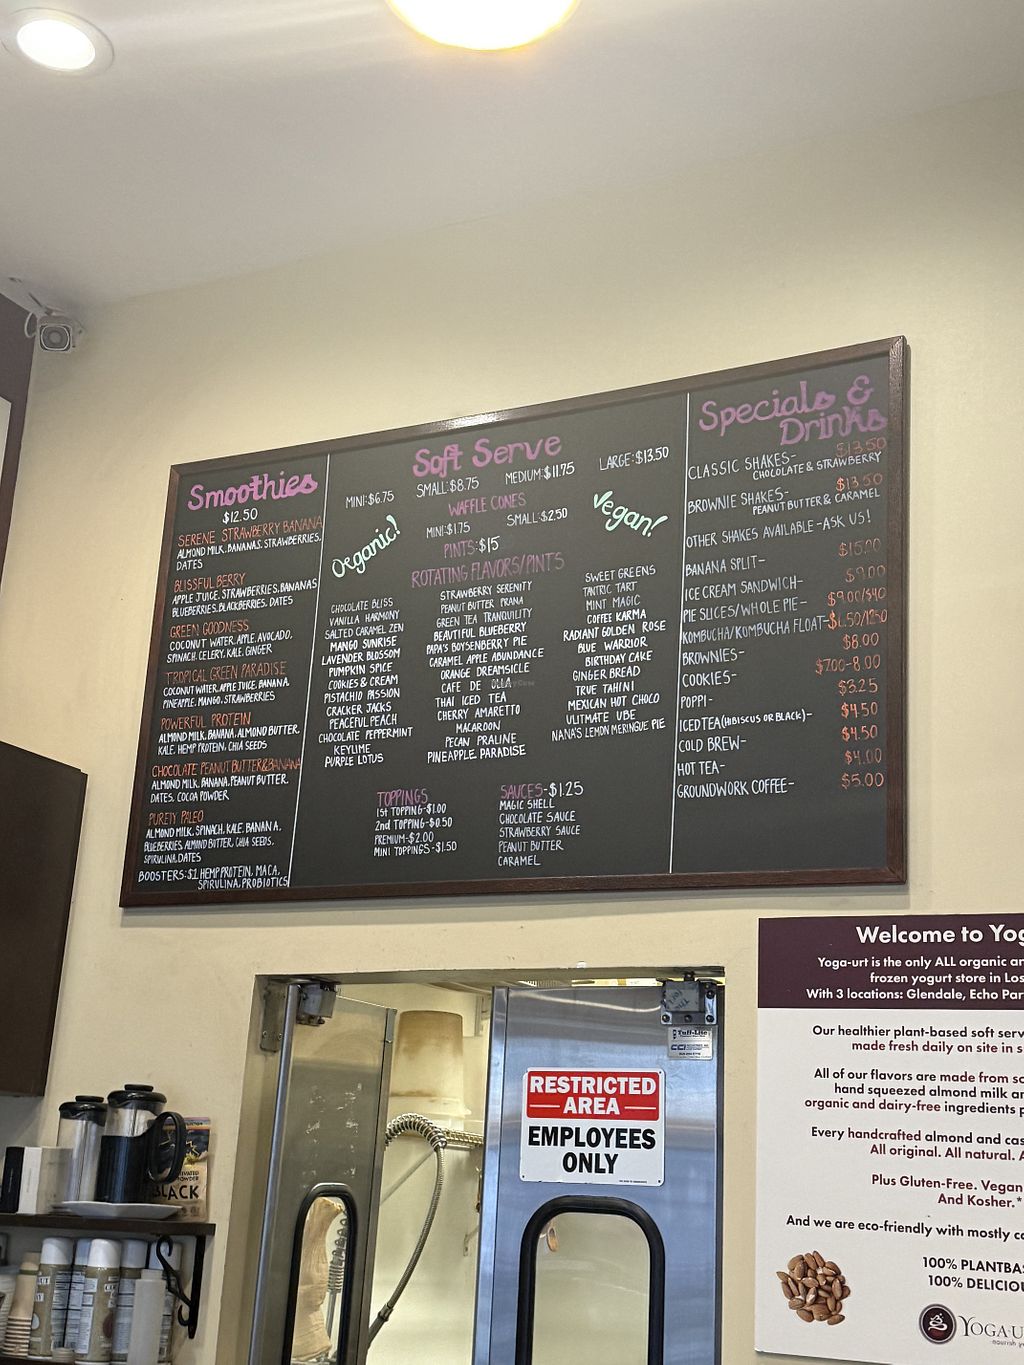 Smoothies
$12.50
SERENE STRAWBERRY BANANA
ALMOND MILK, BANANAS, STRAWBERRIES,
DATES
BLISSFUL BERRY
APPLE JUICE, STRAWBERRIES, BANANAS
BLUEBERRIES, BLACKBERRIES, DATES
GREEN GOODNESS
COCONUT WATER, APPLE, AVOCADO,
SPINACH, CELERY, KALE, GINGER
TROPICAL GREEN PARADISE
COCONUT WATER, APPLE JUICE, BANANA,
PINEAPPLE, MANGO, STRAWBERRIES
POWERFUL PROTEIN
ALMOND MILK, BANANA, ALMOND BUTTER,
KALE, HEMP PROTEIN, CHIA SEEDS
CHOCOLATE PEANUT BUTTER & BANANA
ALMOND MILK, BANANA, PEANUT BUTTER,
DATES, COCOA POWDER
PURELY PALEO
ALMOND MILK, SPINACH, KALE, BANANA,
BLUEBERRIES, ALMOND BUTTER, CHIA SEEDS,
SPIRULINA, DATES
BOOSTERS: $1 HEMP PROTEIN, MACA,
SPIRULINA, PROBIOTICS
Soft Serve
MINI: $6.75 SMALL: $8.75 MEDIUM: $11.75 LARGE: $13.50
WAFFLE CONES
MINI: $1.75 SMALL: $2.50
Organic!
Vegan!
PINTS: $15
ROTATING FLAVORS/PINTS
CHOCOLATE BLISS
VANILLA HARMONY
SALTED CARAMEL ZEN
MANGO SUNRISE
LAVENDER BLOSSOM
PUMPKIN SPICE
COOKIES & CREAM
PISTACHIO PASSION
CRACKER JACKS
PEACEFUL PEACH
CHOCOLATE PEPPERMINT
KEYLIME
PURPLE LOTUS
STRAWBERRY SERENITY
PEANUT BUTTER PRANA
GREEN TEA TRANQUILITY
BEAUTIFUL BLUEBERRY
PAPA'S BOYSENBERRY PIE
CARAMEL APPLE ABUNDANCE
ORANGE DREAMSICLE
CAFE DE OLLA
THAI ICED TEA
CHERRY AMARETTO
MACAROON
PECAN PRALINE
PINEAPPLE PARADISE
SWEET GREENS
TANTRIC TART
MINT MAGIC
COFFEE KARMA
RADIANT GOLDEN ROSE
BLUE WARRIOR
BIRTHDAY CAKE
GINGER BREAD
TRUE TAHINI
MEXICAN HOT CHOCO
ULTIMATE UBE
NANA'S LEMON MERINGUE PIE
TOPPINGS
1st TOPPING-$1.00
2nd TOPPING-$0.50
PREMIUM-$2.00
MINI TOPPINGS-$1.50
SAUCES-$1.25
MAGIC SHELL
CHOCOLATE SAUCE
STRAWBERRY SAUCE
PEANUT BUTTER
CARAMEL
Specials &
Drinks
CLASSIC SHAKES- $13.50
CHOCOLATE & STRAWBERRY
BROWNIE SHAKES- $13.50
PEANUT BUTTER & CARAMEL
OTHER SHAKES AVAILABLE-ASK US!
BANANA SPLIT- $15.00
ICE CREAM SANDWICH- $9.00
PIE SLICES/WHOLE PIE- $9.00/$40
KOMBUCHA/KOMBUCHA FLOAT-$6.50/12.50
BROWNIES- $8.00
COOKIES- $7.00-8.00
POPPI- $3.25
ICED TEA (HIBISCUS OR BLACK)- $4.50
COLD BREW- $4.50
HOT TEA- $4.00
GROUNDWORK COFFEE- $5.00
RESTRICTED
AREA
EMPLOYEES
ONLY
Tuff-Lite
CCI
BLACK
Welcome to Yog
Yoga-urt is the only ALL organic an
frozen yogurt store in Los
With 3 locations: Glendale, Echo Par
Our healthier plant-based soft serv
made fresh daily on site in s
All of our flavors are made from sc
hand squeezed almond milk an
organic and dairy-free ingredients p
Every handcrafted almond and cas
All original. All natural. A
Plus Gluten-Free. Vegan
And Kosher.*
And we are eco-friendly with mostly co
100% PLANTBA
100% DELICIOU
YOGA-U
nourish y